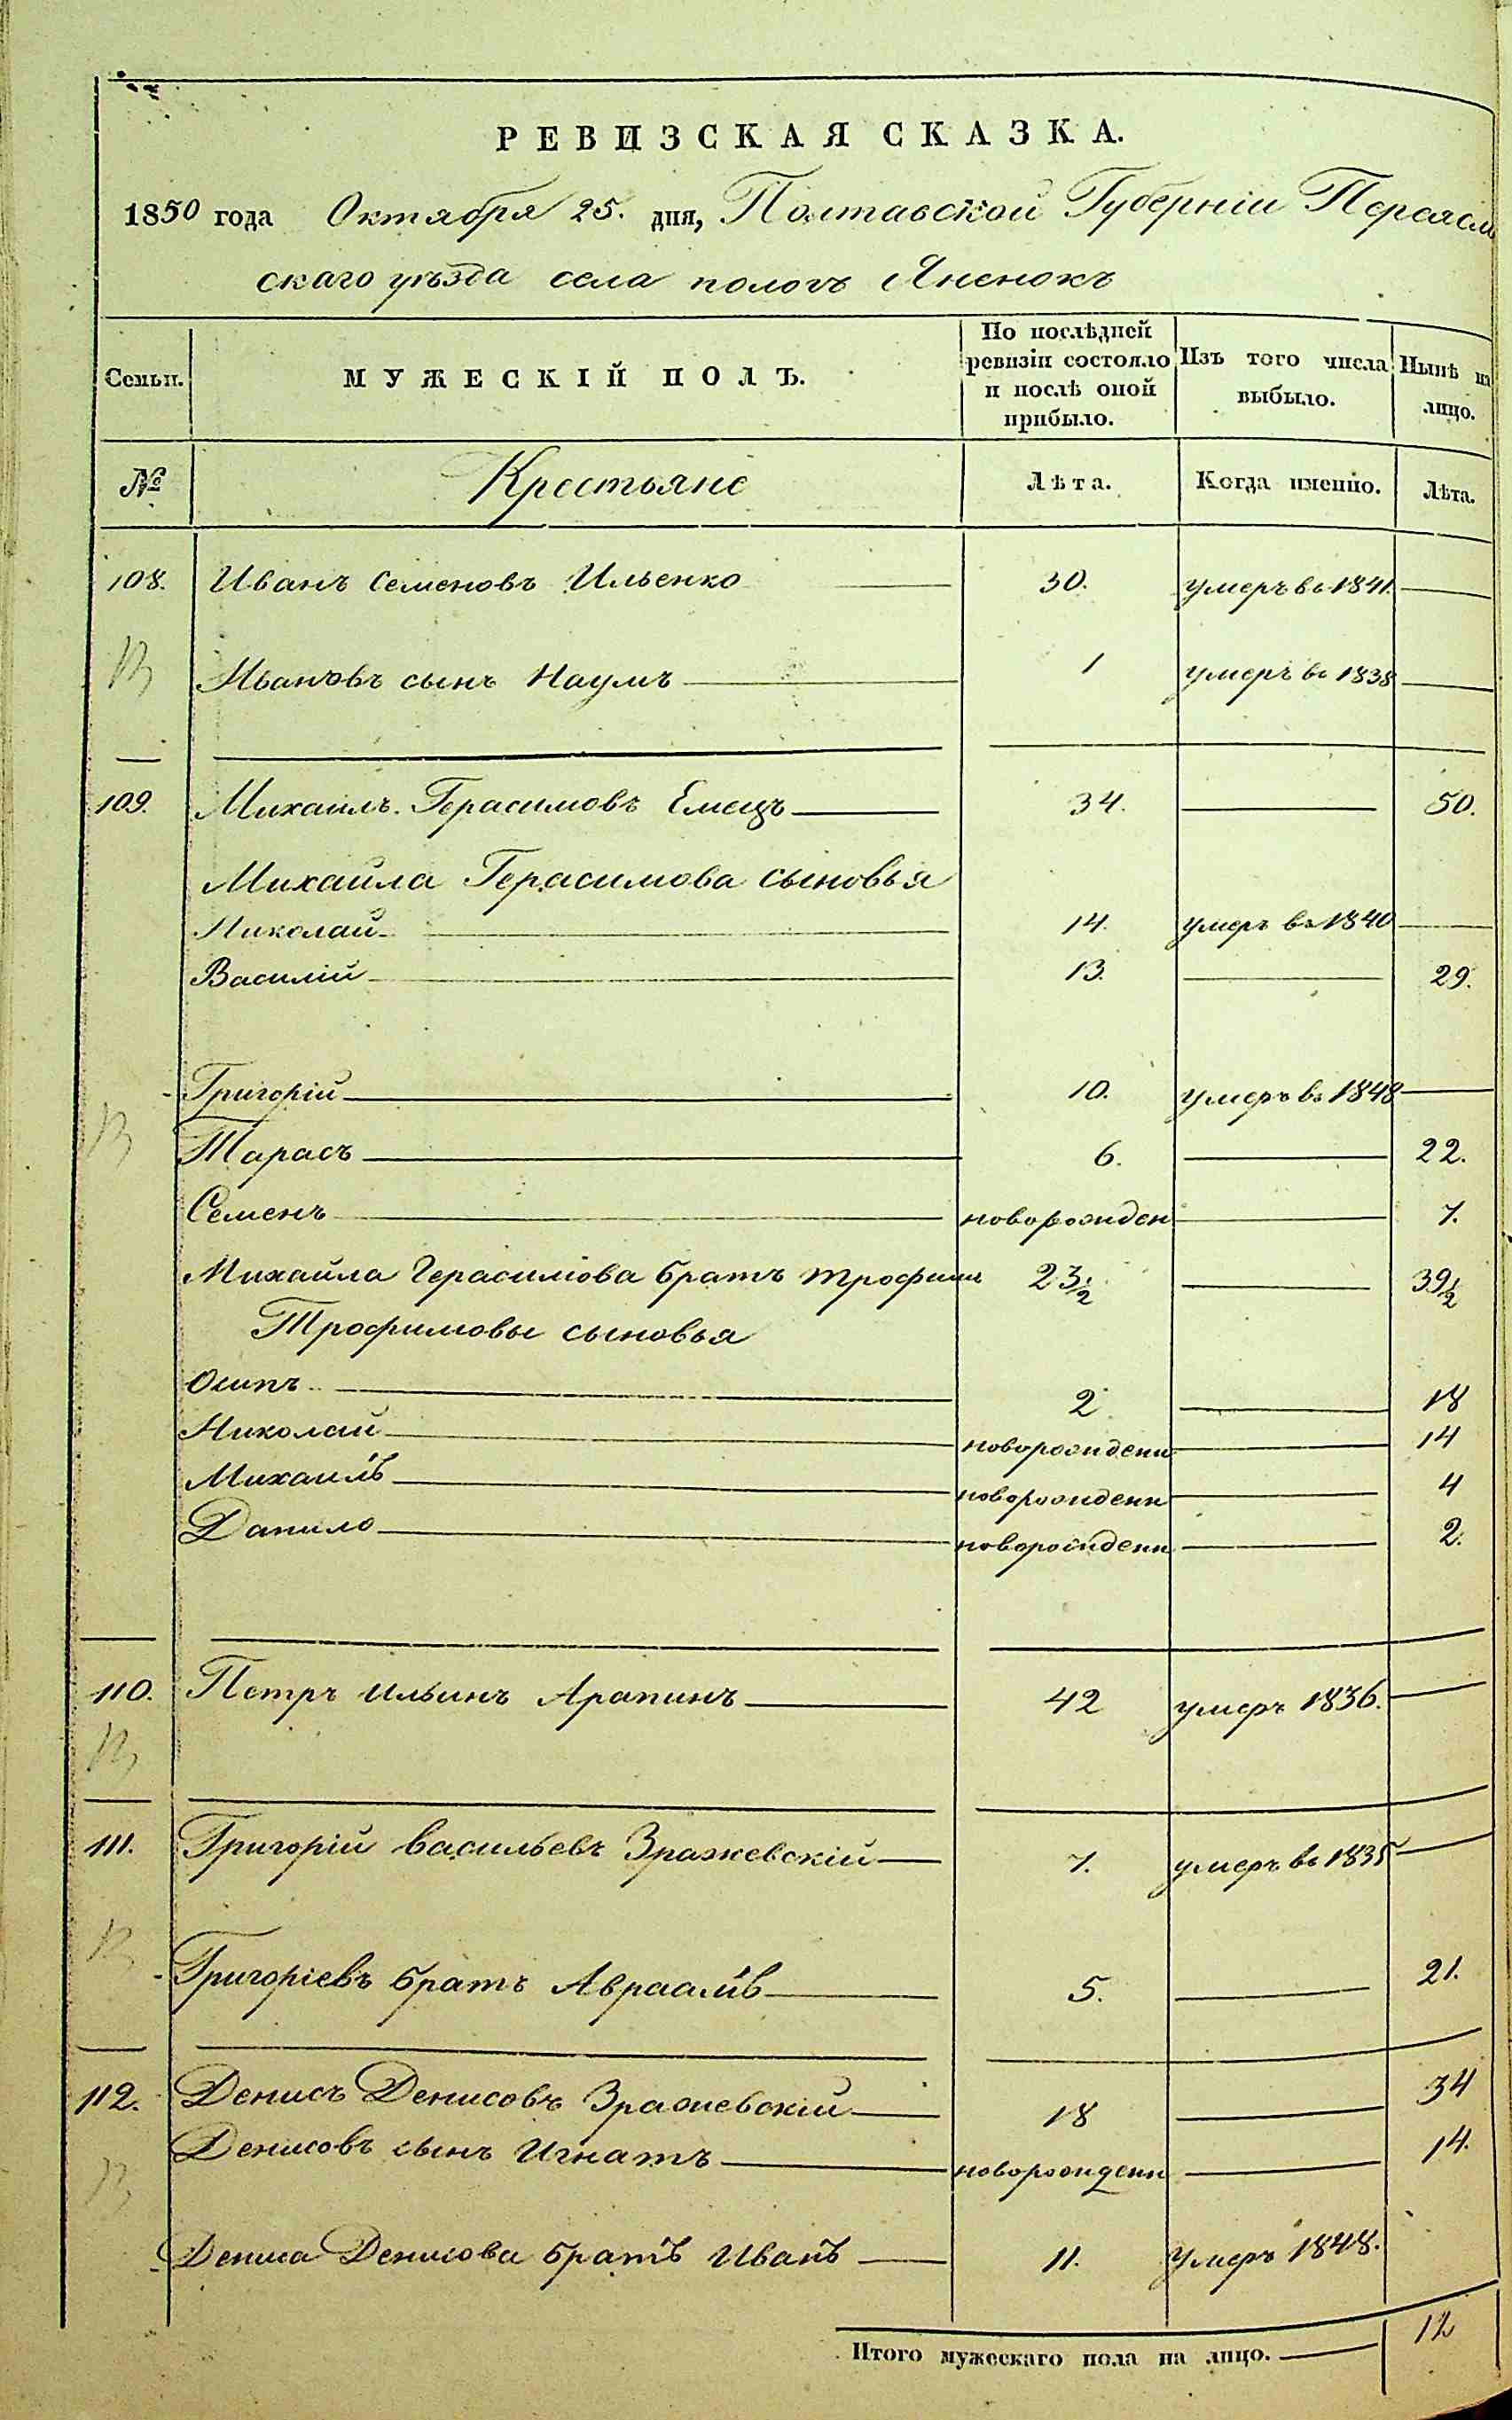 РЕВИЗСКАЯ СКАЗКА.
1850 года Октября 25. дня, Полтавской Губерніи Переясл
скаго уѣзда села пологъ Яненокъ
Семьи.
МУЖЕСКІЙ ПОЛЪ.
По послѣдней ревизіи состояло и послѣ оной прибыло.
Изъ того числа выбыло.
Нынѣ на лицо.
№ Крестьяне Лѣта. Когда именно. Лѣта.
108. Иванъ Семеновъ Ильенко 30. умеръ въ 1841.
Ивановъ сынъ Наумъ 1 умеръ въ 1838
109. Михаилъ Герасимовъ Емецъ 34. 50.
Михаила Герасимова сыновья
Николай 14. умеръ въ 1840
Василій 13. 29.
Григорій 10. умеръ въ 1848
Тарасъ 6. 22.
Семенъ новорожден 7.
Михайла Герасимова братъ трофимъ 23 1/2 39 1/2
Трофимовы сыновья
Осипъ 2 18
Николай новорожденн 14
Михаилъ новорожденн 4
Данило новорожденн 2.
110. Петръ Ильинъ Арапинъ 42 умеръ 1836.
111. Григорій Васильевъ Зражевскій 7. умеръ въ 1835
Григоріевъ братъ Авраамъ 5. 21.
112. Денисъ Денисовъ Зражевскій 18 34
Денисовъ сынъ Игнатъ новорожденн 14.
Дениса Денисова братъ Иванъ 11. Умеръ 1848.
Итого мужескаго пола на лицо. 12